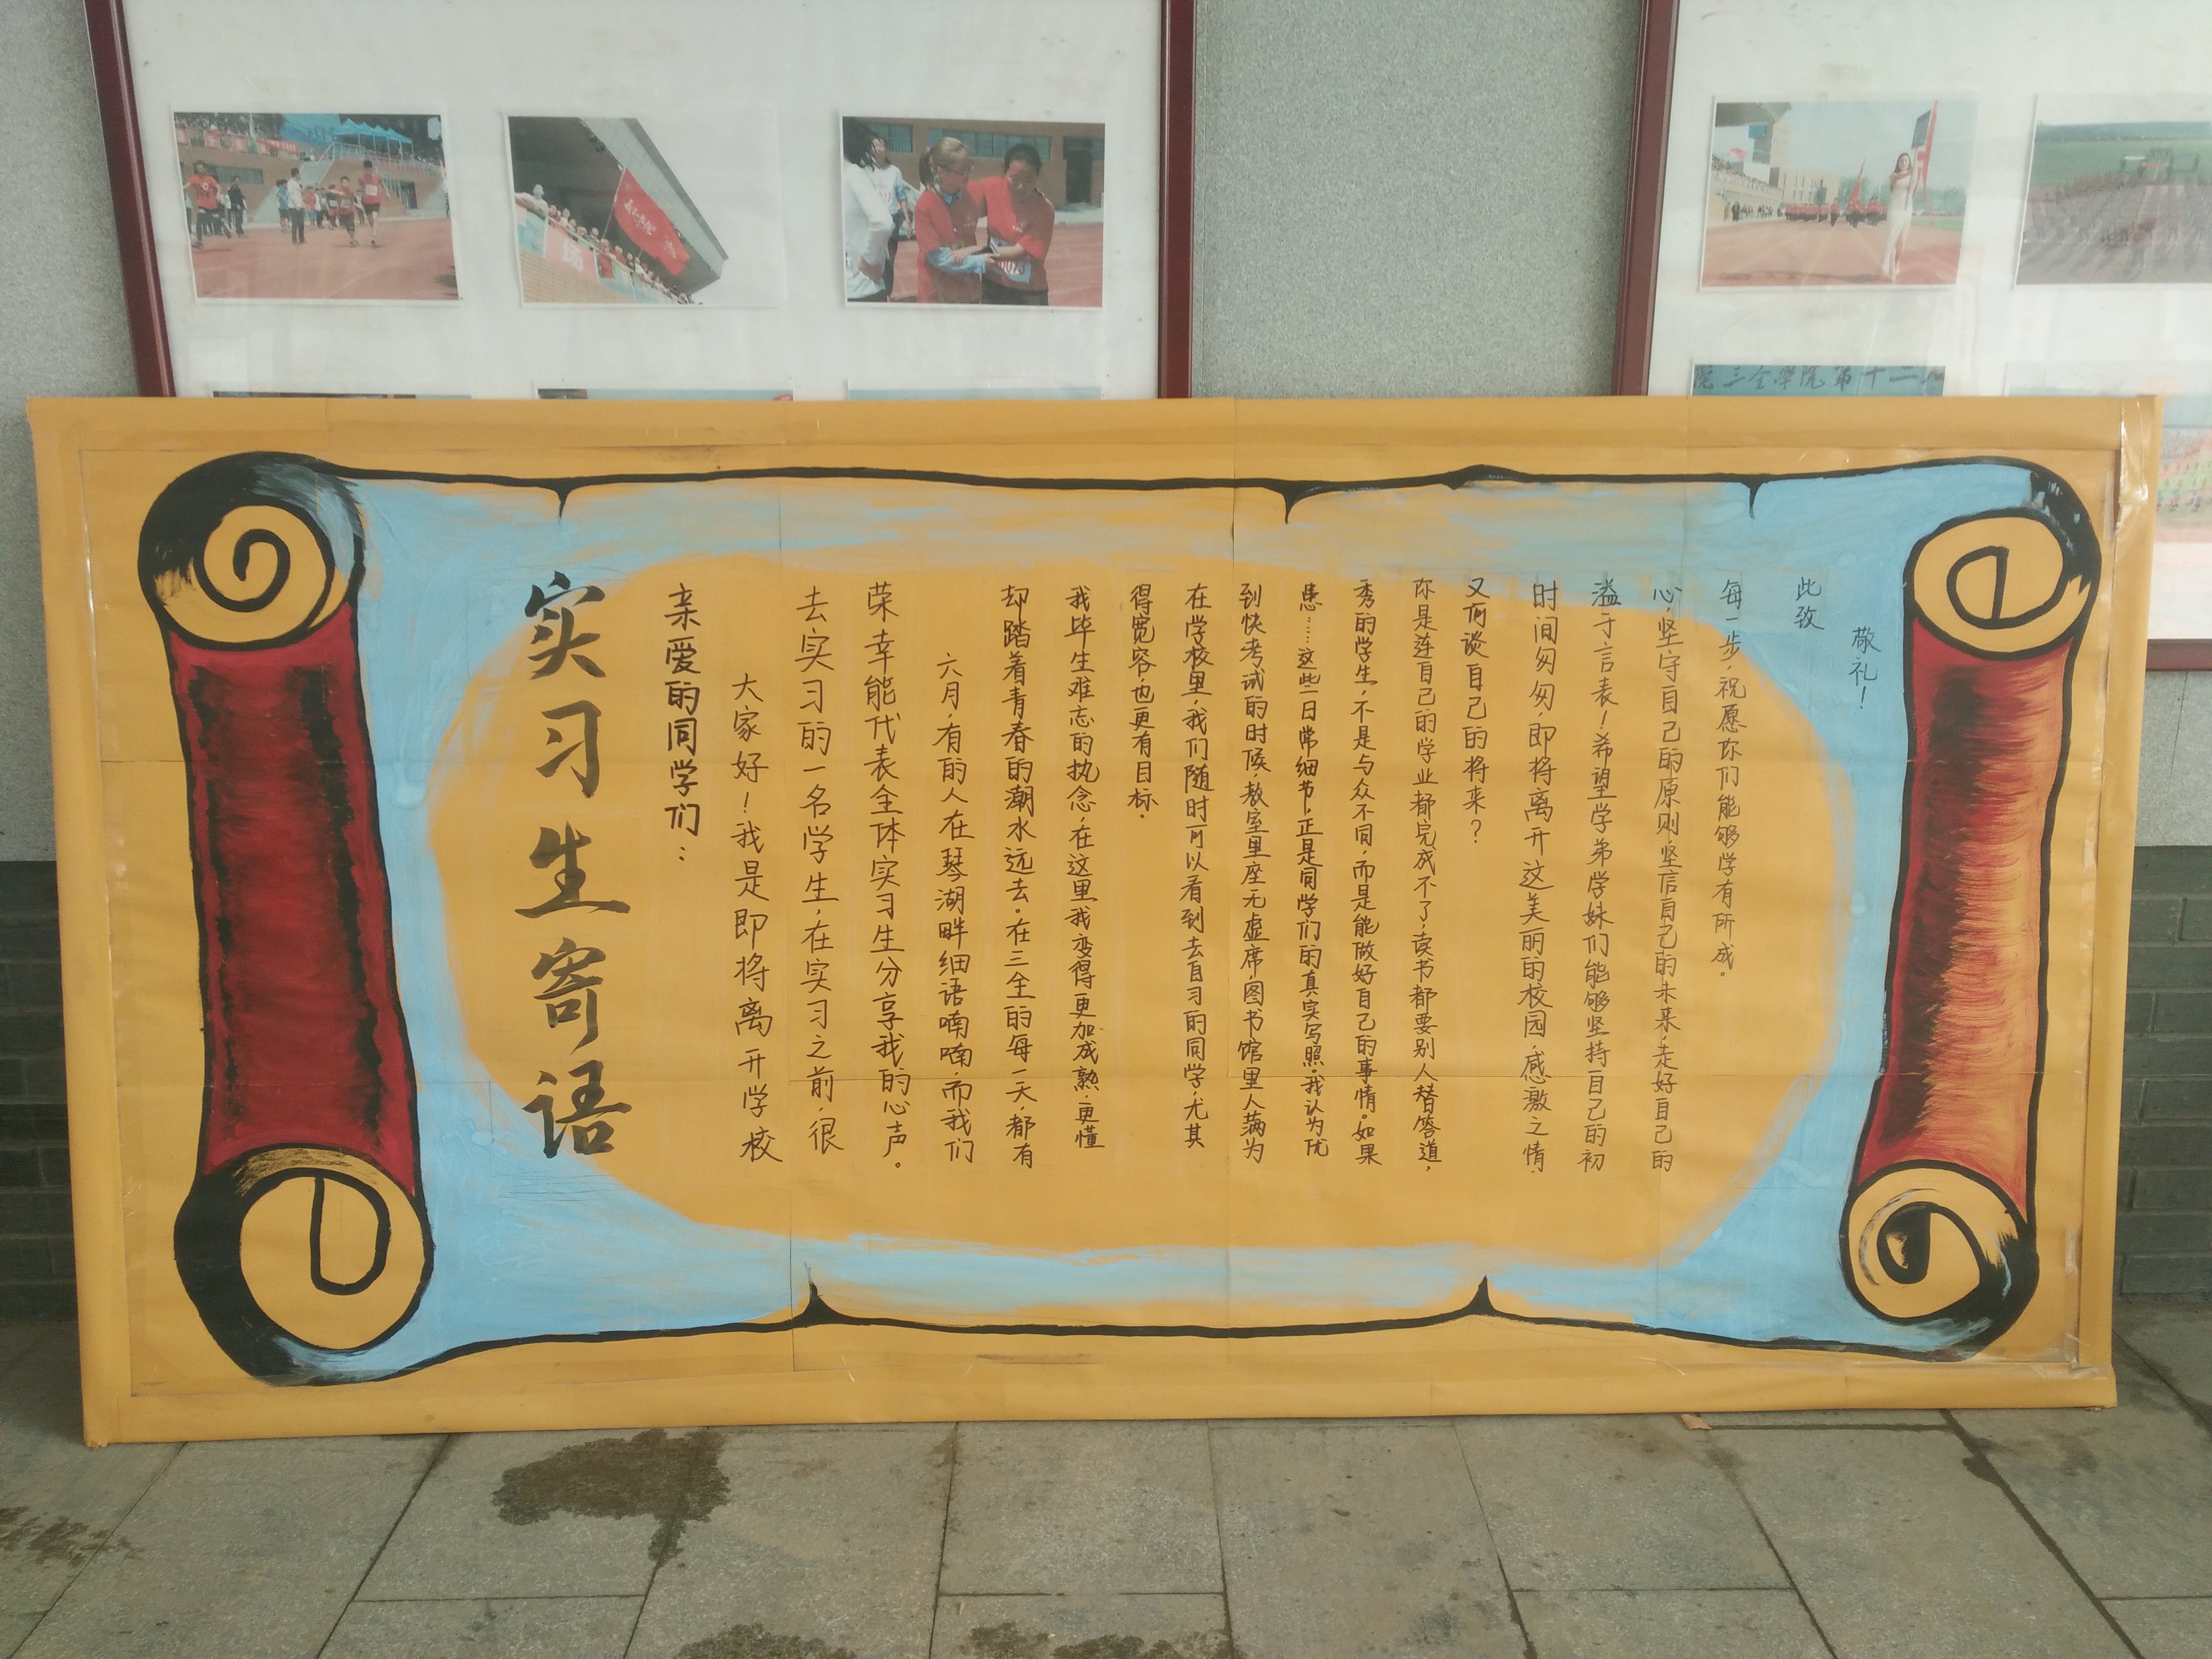 实习生寄语
亲爱的同学们：
大家好！我是即将离开学校
去实习的一名学生，在实习之前，很
荣幸能代表全体实习生分享我的心声。
六月，有的人在琴湖畔细语喃喃，而我们
却踏着青春的潮水远去。在三全的每一天，都有
我毕生难忘的执念，在这里我变得更加成熟，更懂
得宽容，也更有目标。
在学校里，我们随时可以看到去自习的同学，尤其
到快考试的时候，教室里座无虚席，图书馆里人满为
患……这些日常细节，正是同学们的真实写照。我认为优
秀的学生，不是与众不同，而是能做好自己的事情。如果
你是连自己的学业都完成不了，读书都要别人替答道，
又何谈自己的将来？
时间匆匆，即将离开这美丽的校园，感激之情，
溢于言表！希望学弟学妹们能够坚持自己的初
心，坚守自己的原则，坚信自己的未来，走好自己的
每一步，祝愿你们能够学有所成。
此致
敬礼！
院三全學院第十二